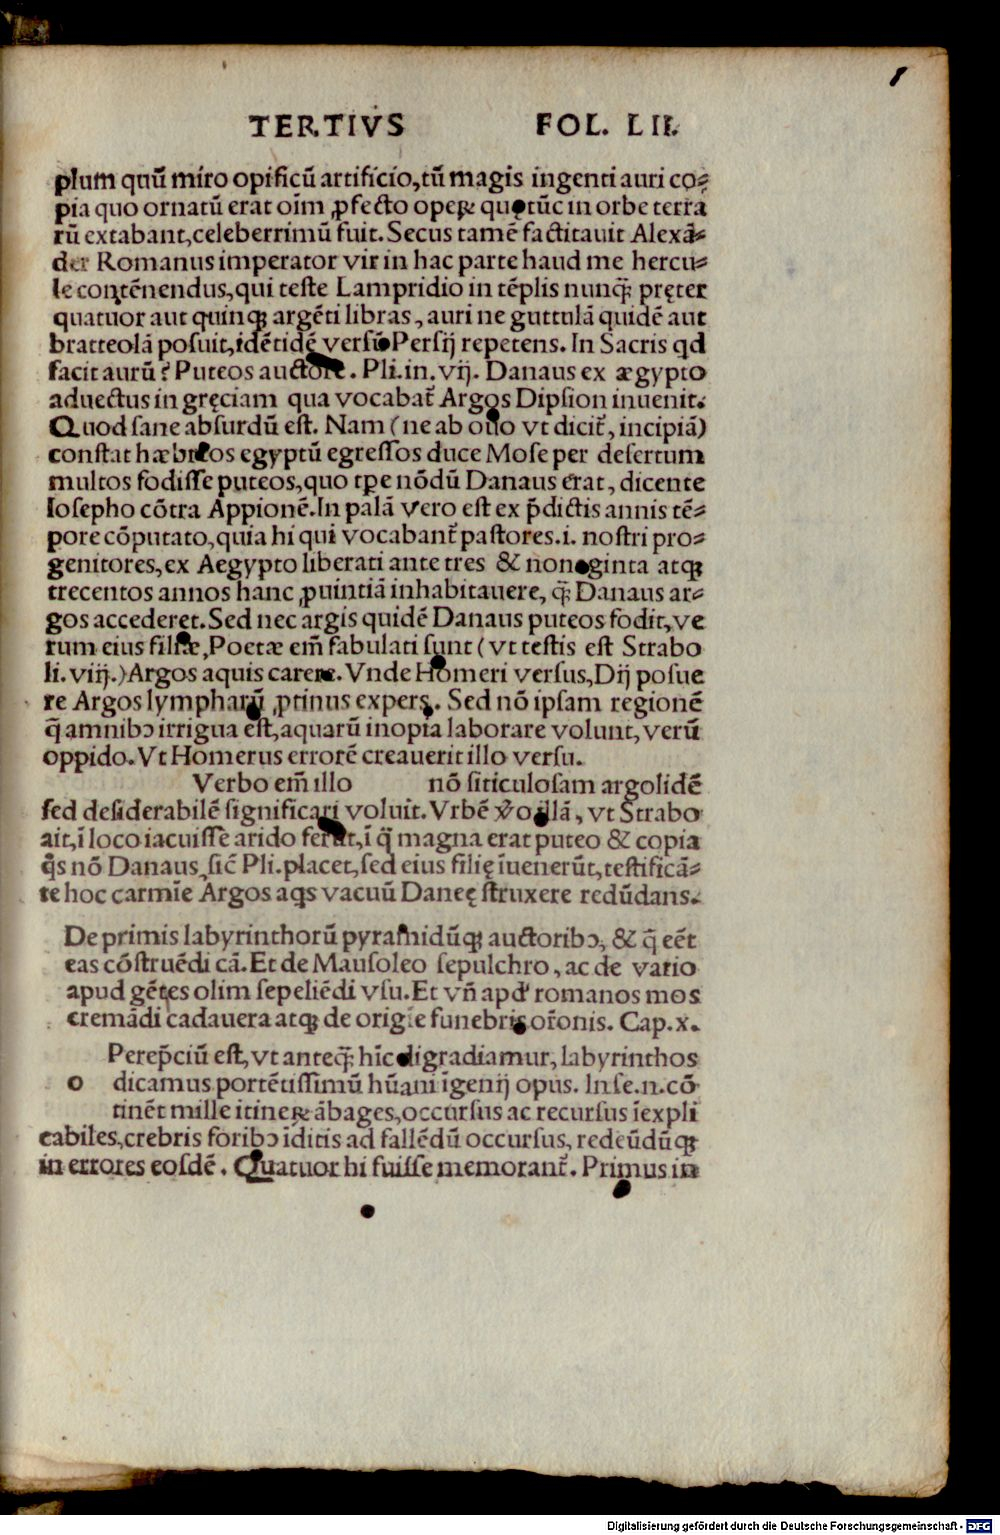 TERTIVS FOL. LII.
plum quũ miro opificũ artificio,tũ magis ingenti auri co⸗
pia quo ornatũ erat oim̃ ꝓfecto opeꝝ quę tũc in orbe terrā
rũ extabant,celeberrimũ fuit.Secus tamẽ factitauit Alexã⸗
der Romanus imperator vir in hac parte haud me hercu⸗
le contẽnendus,qui teste Lampridio in tẽplis nunꝗ̃ pręter
quatuor aut quinꝗ argẽti libras, auri ne guttulã quidẽ aut
bratteolã posuit,idẽtidẽ versũ Persij repetens. In Sacris qd
facit aurũ? Puteos auctore. Pli.in.vij. Danaus ex ægypto
aduectus in gręciam qua vocabat̃ Argos Dipsion inuenit.
Quod sane absurdũ est. Nam (ne ab ouo vt dicit̃, incipiã)
constat hæbreos egyptũ egressos duce Mose per desertum
multos fodisse puteos,quo tꝑe nõdũ Danaus erat, dicente
Iosepho cõtra Appionẽ.In palã vero est ex p̃dictis annis tẽ⸗
pore cõputato,quia hi qui vocabant̃ pastores.i. nostri pro⸗
genitores,ex Aegypto liberati ante tres & nonoginta atꝗ
trecentos annos hanc ꝓuintiã inhabitauere, ꝗ̃ Danaus ar⸗
gos accederet.Sed nec argis quidẽ Danaus puteos fodit,ve
rum eius filiæ,Poetæ em̃ fabulati sunt (vt testis est Strabo
li. viij.)Argos aquis carere.Vnde Homeri versus,Dij posue
re Argos lympharũ ꝓtinus expers. Sed nõ ipsam regionẽ
q̃ amnibꝰ irrigua est,aquarũ inopia laborare volunt,verũ
oppido.Vt Homerus errorẽ creauerit illo versu.
Verbo em̃ illo nõ siticulosam argolidẽ
sed desiderabilẽ significari voluit.Vrbẽ v̉o illã, vt Strabo
ait,ĩ loco iacuisse arido ferũt,ĩ q̃ magna erat puteo & copia
q̃s nõ Danaus,sic̃ Pli.placet,sed eius filię ĩuenerũt,testificã⸗
te hoc carmĩe Argos aq̃s vacuũ Daneę struxere redũdans.
De primis labyrinthorũ pyramidũꝗ auctoribꝰ, & q̃ eẽt
eas cõstruẽdi cã.Et de Mausoleo sepulchro, ac de vario
apud gẽtes olim sepeliẽdi vsu.Et vñ apd̉ romanos mos
cremãdi cadauera atꝗ de origĩe funebris or̃onis. Cap.x.
Perep̃ciũ est,vt anteꝗ̃ hĩc digradiamur, labyrinthos
o dicamus portẽtissimũ hũani ĩgenij opus. In se.n.cõ
tinẽt mille itineꝝ ãbages,occursus ac recursus ĩexpli
cabiles,crebris foribꝰ ĩditis ad fallẽdũ occursus, redeũdũꝗ
in errores eosdẽ. Quatuor hi fuisse memorant̃. Primus in
Digitalisierung gefördert durch die Deutsche Forschungsgemeinschaft - DFG